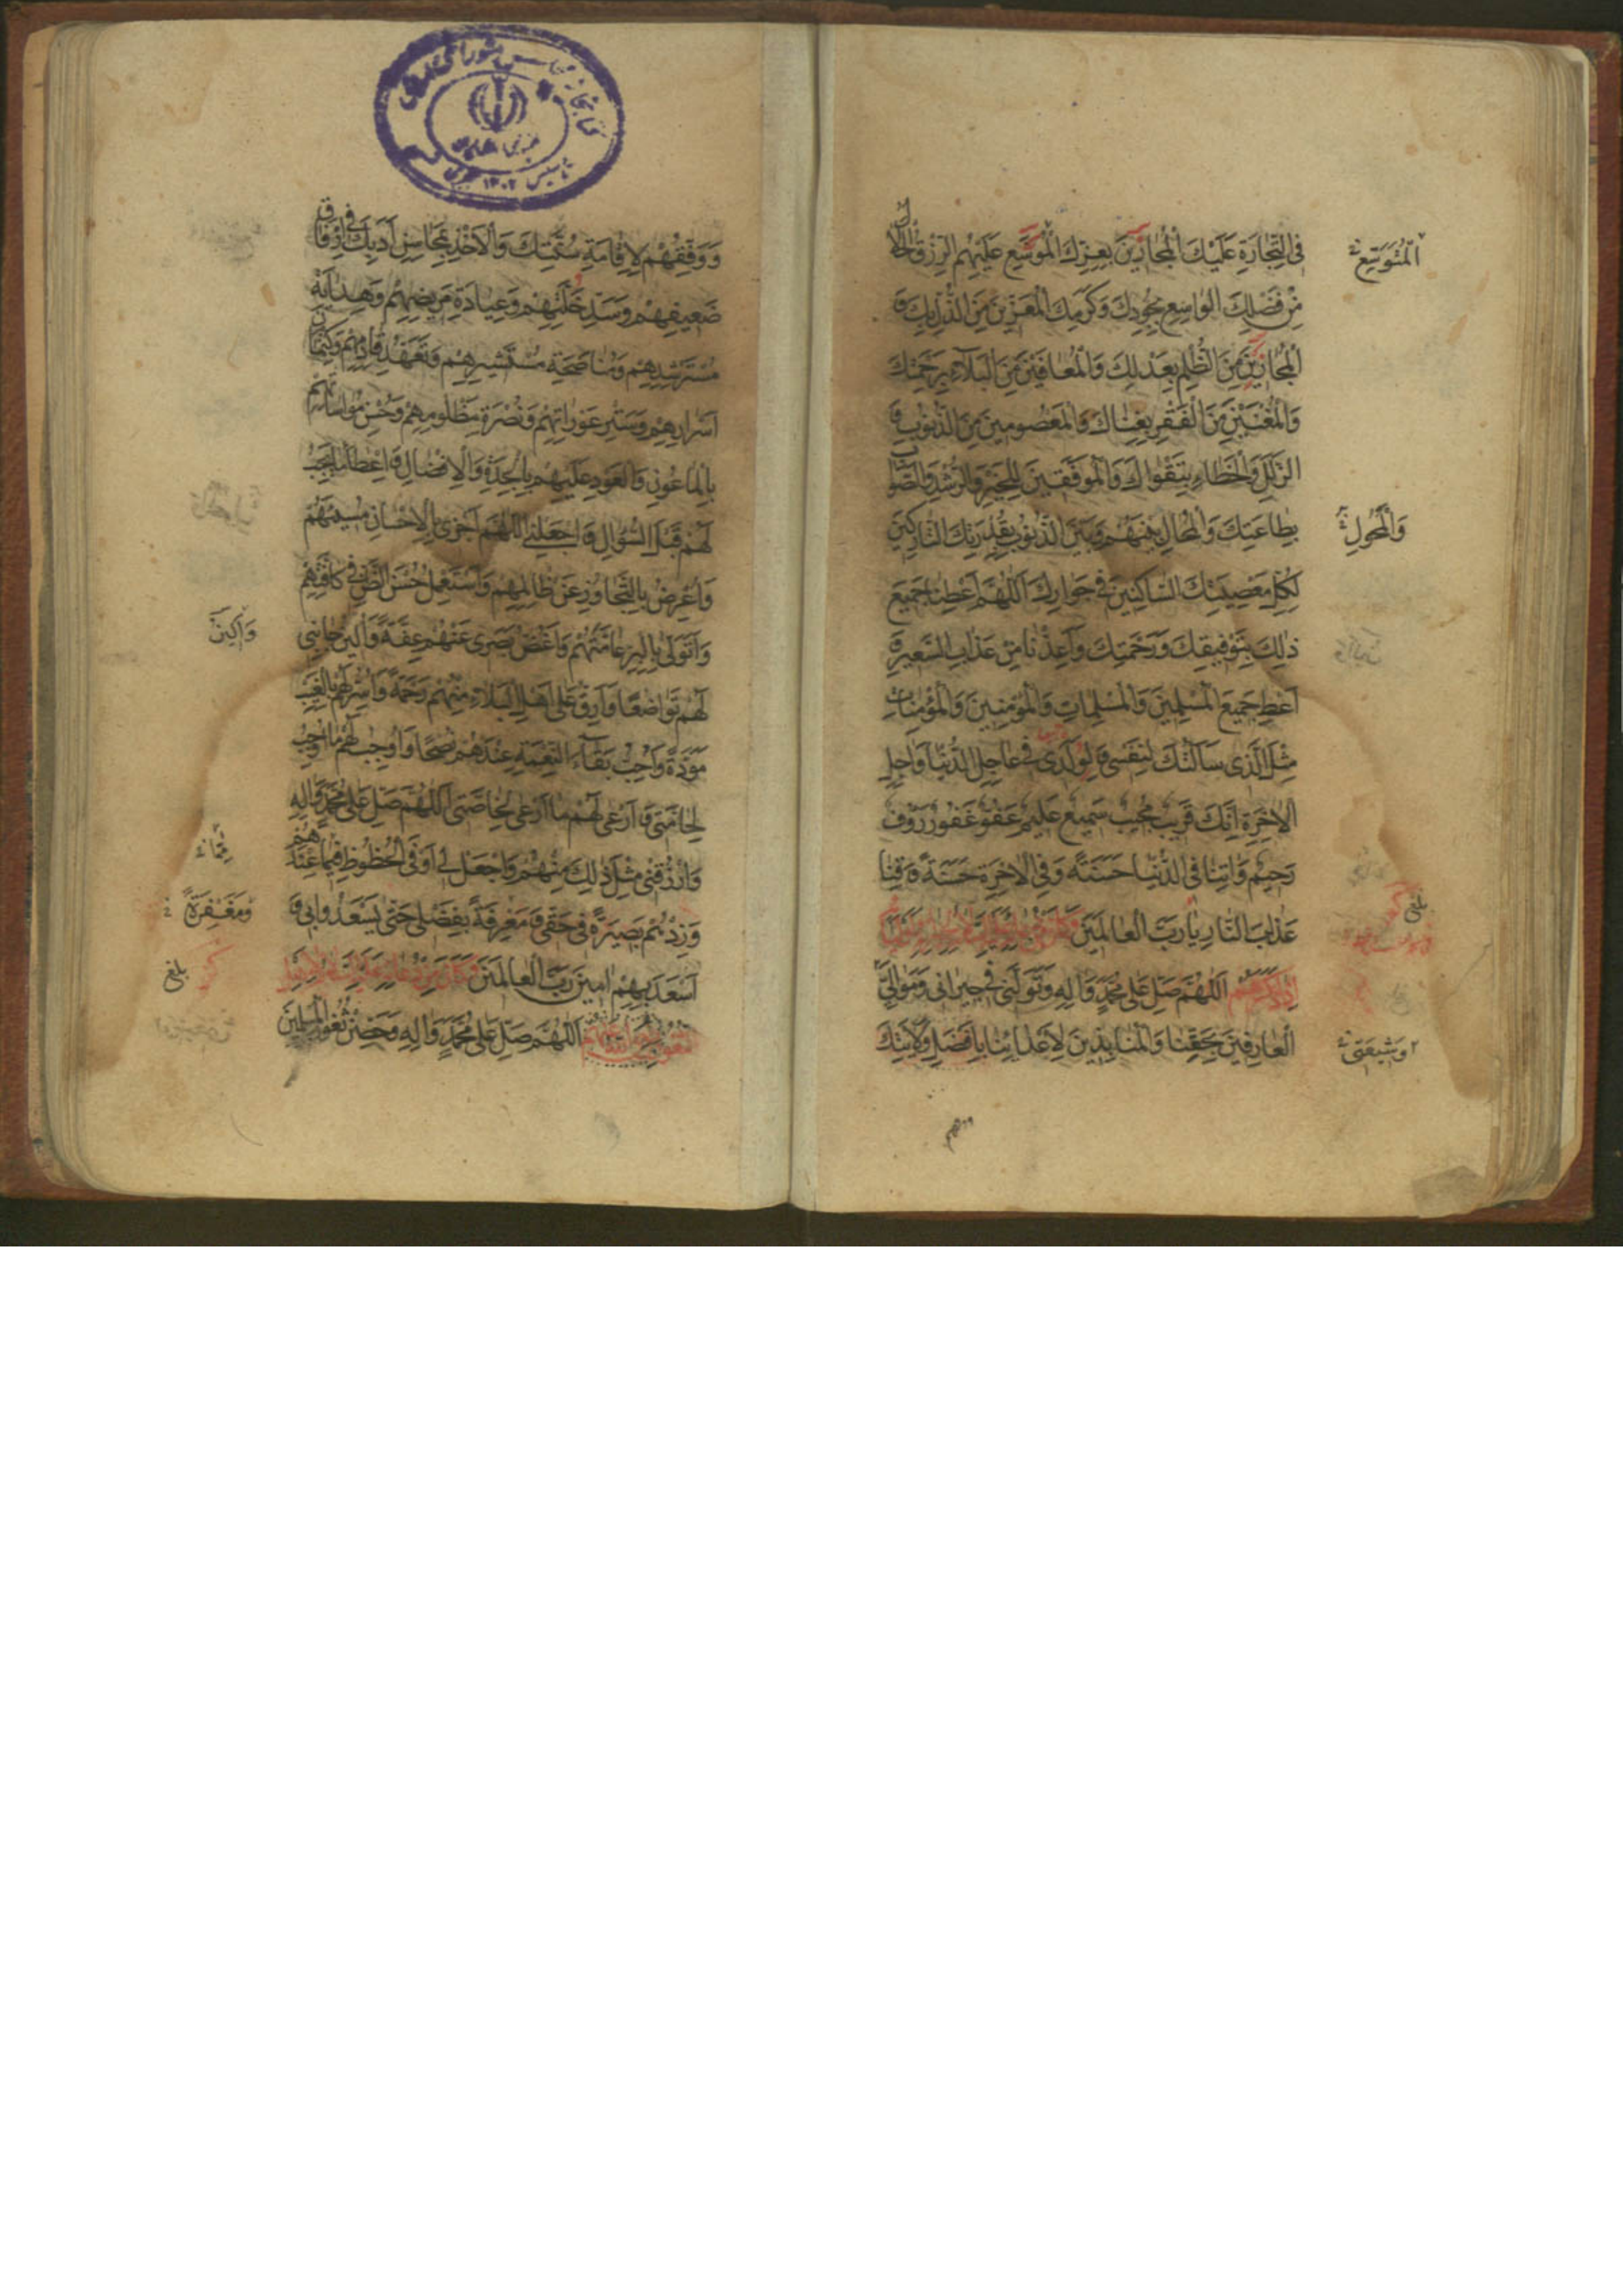 فِى التِّجَارَةِ عَلَيْكَ الْمُجَارِينَ بِعِزِّكَ الْمُوَسَّعِ عَلَيْهِمُ الرِّزْقُ الْحَلَالُ
مِنْ فَضْلِكَ الْوَاسِعِ بِجُودِكَ وَكَرَمِكَ الْمُعَزِّينَ مِنَ الذُّلِّ بِكَ وَ
الْمُجَارِينَ مِنَ الظُّلْمِ بِعَدْلِكَ وَالْمُعَافَيْنَ مِنَ الْبَلَآءِ بِرَحْمَتِكَ
وَالْمُغْنَيْنَ مِنَ الْفَقْرِ بِغِنَاكَ وَالْمَعْصُومِينَ مِنَ الذُّنُوبِ وَ
الزَّلَلِ وَالْخَطَاءِ بِتَقْوَاكَ وَالْمُوَفَّقِينَ لِلْخَيْرِ وَالرُّشْدِ وَالصَّوَابِ
بِطَاعَتِكَ وَالْمُحَالِ بَيْنَهُمْ وَبَيْنَ الذُّنُوبِ بِقُدْرَتِكَ التَّارِكِينَ
لِكُلِّ مَعْصِيَتِكَ السَّاكِنِينَ فِي جِوَارِكَ اَللّٰهُمَّ اَعْطِنَا جَمِيعَ
ذٰلِكَ بِتَوْفِيقِكَ وَرَحْمَتِكَ وَاَعِذْنَا مِنْ عَذَابِ السَّعِيرِ وَ
اَعْطِ جَمِيعَ الْمُسْلِمِينَ وَالْمُسْلِمَاتِ وَالْمُؤْمِنِينَ وَالْمُؤْمِنَاتِ
مِثْلَ الَّذِى سَاَلْتُكَ لِنَفْسِى وَلِوُلْدِى فِى عَاجِلِ الدُّنْيَا وَاٰجِلِ
الْاٰخِرَةِ اِنَّكَ قَرِيبٌ مُجِيبٌ سَمِيعٌ عَلِيمٌ عَفُوٌّ غَفُورٌ رَؤُوفٌ
رَحِيمٌ وَاٰتِنَا فِى الدُّنْيَا حَسَنَةً وَفِى الْاٰخِرَةِ حَسَنَةً وَقِنَا
عَذَابَ النَّارِ يَا رَبَّ الْعَالَمِينَ
اِذَا ذَكَرَهُمْ اَللّٰهُمَّ صَلِّ عَلٰى مُحَمَّدٍ وَاٰلِهِ وَتَوَلَّنِى فِى جِيرَانِى وَمَوَالِيَّ
الْعَارِفِينَ بِحَقِّنَا وَالْمُنَابِذِينَ لِاَعْدَائِنَا بِاَفْضَلِ وَلَايَتِكَ
الْمُتَوَسِّعِ
وَالْمَحُولِ
بلغ
وَشِيعَتِى
وَوَفِّقْهُمْ لِاِقَامَةِ سُنَّتِكَ وَالْاَخْذِ بِمَحَاسِنِ اَدَبِكَ فِى اِرْفَاقِ
ضَعِيفِهِمْ وَسَدِّ خَلَّتِهِمْ وَعِيَادَةِ مَرِيضِهِمْ وَهِدَايَةِ
مُسْتَرْشِدِهِمْ وَمُنَاصَحَةِ مُسْتَشِيرِهِمْ وَتَعَهُّدِ قَادِمِهِمْ وَكِتْمَانِ
اَسْرَارِهِمْ وَسَتْرِ عَوْرَاتِهِمْ وَنُصْرَةِ مَظْلُومِهِمْ وَحُسْنِ مُوَاسَاتِهِمْ
بِالْمَاعُونِ وَالْعَوْدِ عَلَيْهِمْ بِالْجِدَةِ وَالْاِفْضَالِ وَاِعْطَاءِ مَا يَجِبُ
لَهُمْ قَبْلَ السُّؤَالِ وَاجْعَلْنِى اَللّٰهُمَّ اَجْزِى بِالْاِحْسَانِ مُسِيئَهُمْ
وَاُعْرِضُ بِالتَّجَاوُزِ عَنْ ظَالِمِهِمْ وَاَسْتَعْمِلُ حُسْنَ الظَّنِّ فِى كَافَّتِهِمْ
وَاَتَوَلّٰى بِالْبِرِّ عَامَّتَهُمْ وَاَغُضُّ بَصَرِى عَنْهُمْ عِفَّةً وَاُلِينُ جَانِبِى
لَهُمْ تَوَاضُعًا وَاَرِقُّ عَلٰى اَهْلِ الْبَلَاءِ مِنْهُمْ رَحْمَةً وَاُسِرُّ لَهُمْ بِالْغَيْبِ
مَوَدَّةً وَاُحِبُّ بَقَاءَ النِّعْمَةِ عِنْدَهُمْ نُصْحًا وَاُوجِبُ لَهُمْ مَا اُوجِبُ
لِحَامَّتِى وَاَرْعٰى لَهُمْ مَا اَرْعٰى لِخَاصَّتِى اَللّٰهُمَّ صَلِّ عَلٰى مُحَمَّدٍ وَاٰلِهِ
وَارْزُقْنِى مِثْلَ ذٰلِكَ مِنْهُمْ وَاجْعَلْ لِى اَوْفَى الْحُظُوظِ فِيمَا عِنْدَهُمْ
وَزِدْهُمْ بَصِيرَةً فِى حَقِّى وَمَعْرِفَةً بِفَضْلِى حَتّٰى يَسْعَدُوا بِى وَ
اَسْعَدَ بِهِمْ اٰمِينَ رَبَّ الْعَالَمِينَ
اَللّٰهُمَّ صَلِّ عَلٰى مُحَمَّدٍ وَاٰلِهِ وَحَصِّنْ ثُغُورَ الْمُسْلِمِينَ
وَاُلِينُ
وَمَغْفِرَةً
بلغ